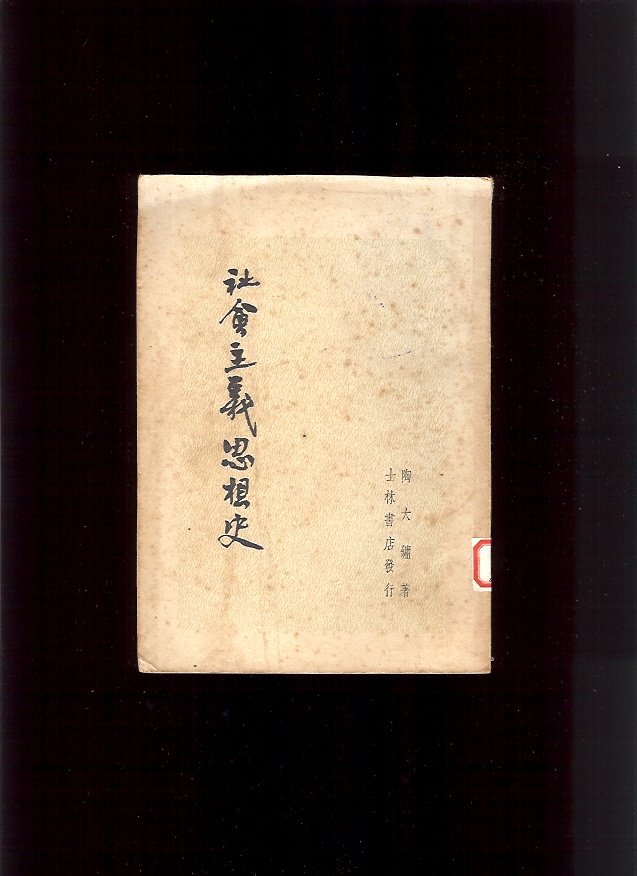 社會主義思想史
陶大鏞著
士林書店發行